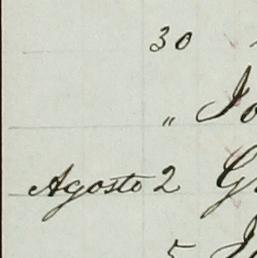 30
„ Jo
Agosto 2 G
5 J